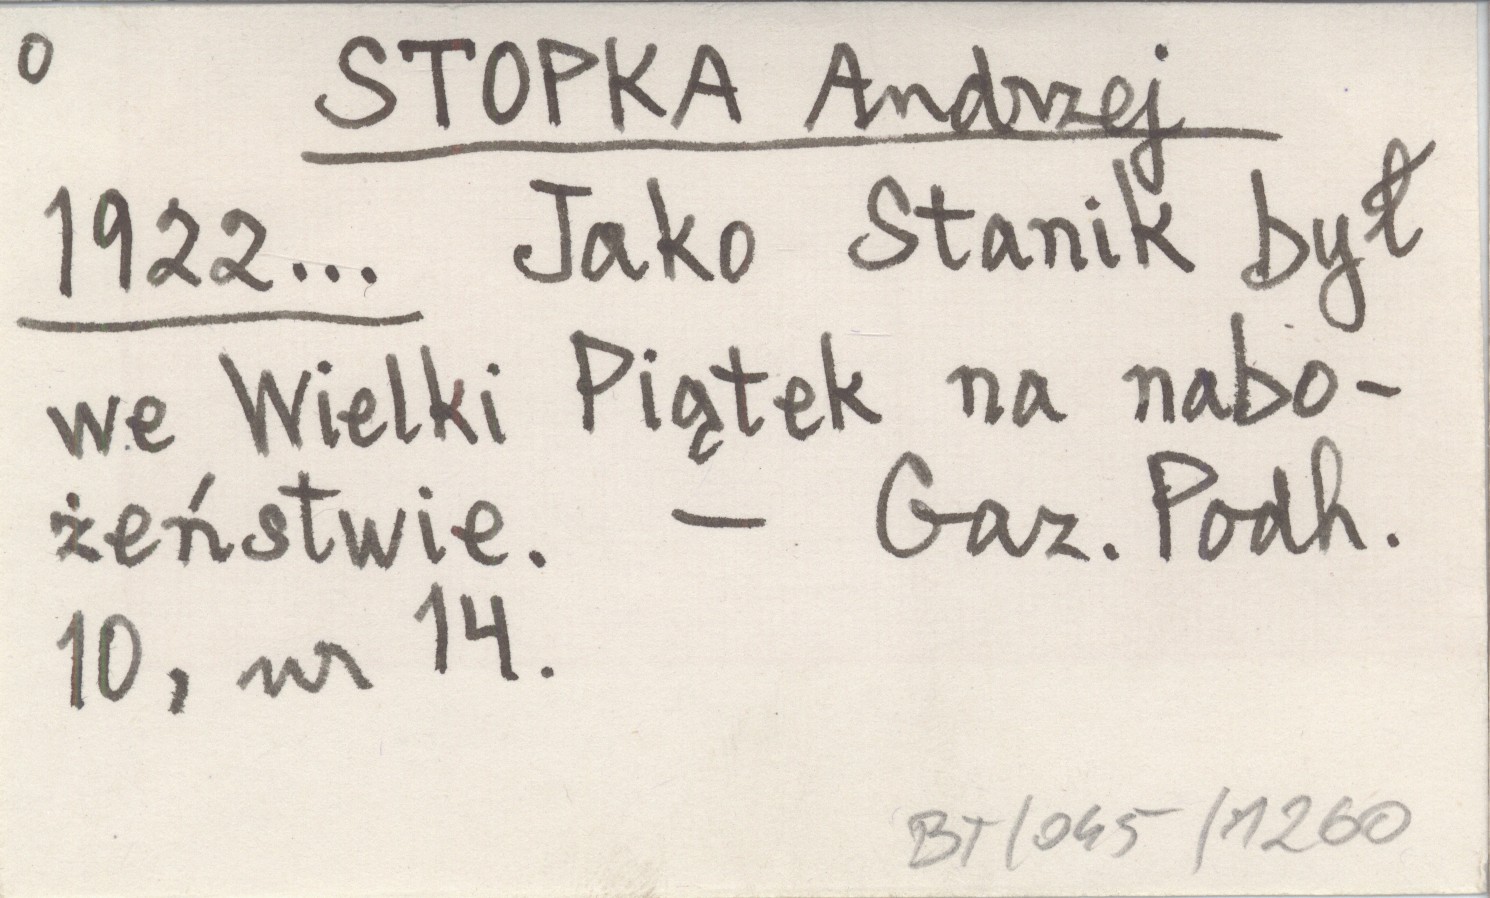 o
STOPKA Andrzej
1922... Jako Stanik był
we Wielki Piątek na nabo-
żeństwie. — Gaz. Podh.
10, nr 14.
BT/045/1260